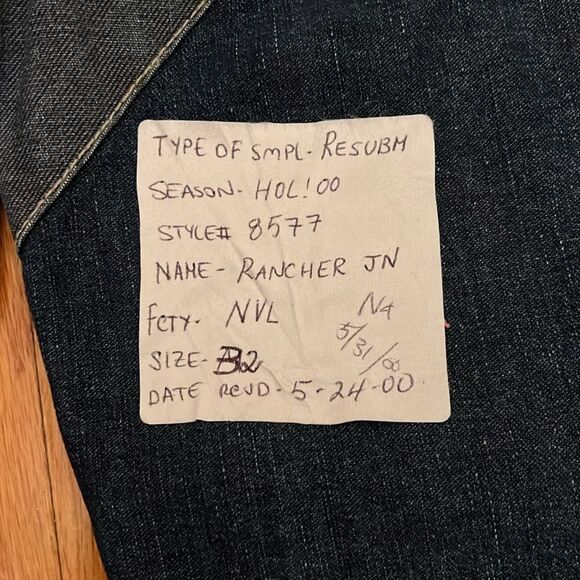 TYPE OF SMPL- RESUBM
SEASON- HOL'00
STYLE# 8577
NAME- RANCHER JN
FCTY- NVL
SIZE- 32
DATE RCVD- 5-24-00
5/31/00